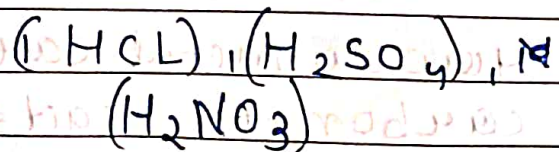 (HCL), (H₂SO₄),
(H₂NO₃)